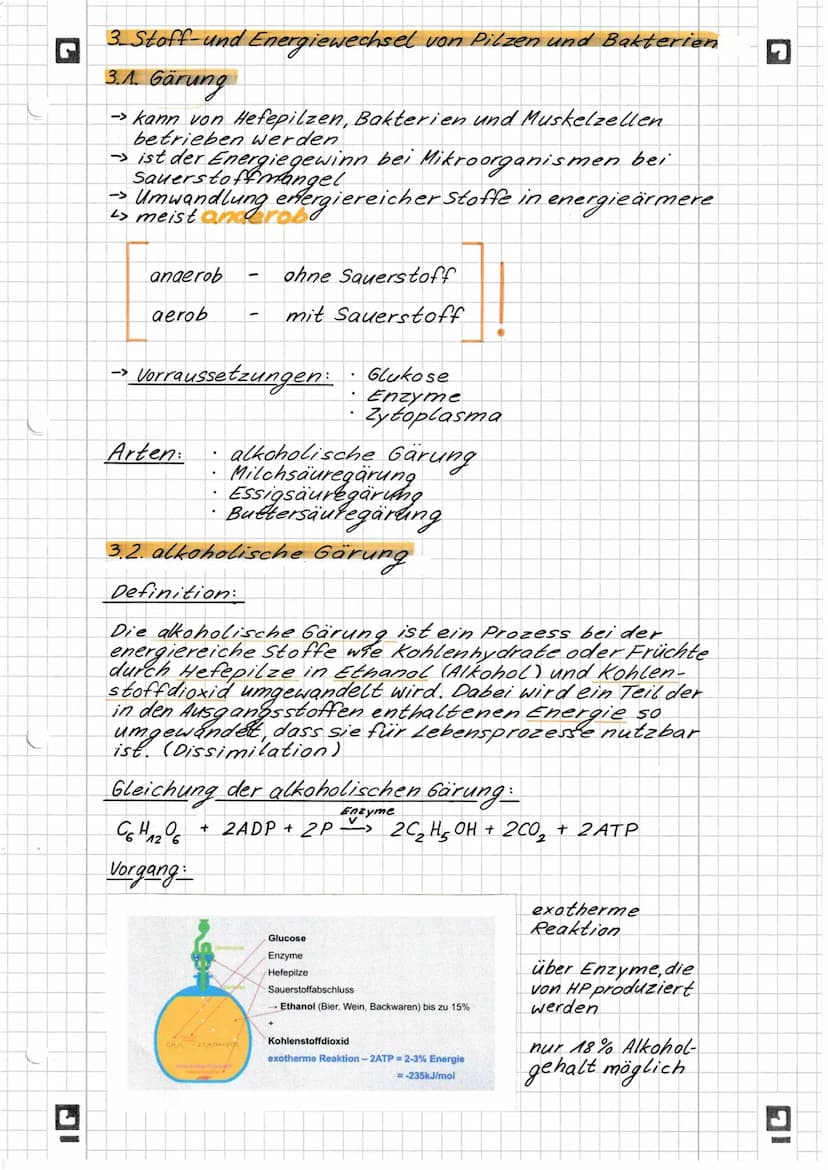 3. Stoff- und Energiewechsel von Pilzen und Bakterien
3.1. Gärung
-> kann von Hefepilzen, Bakterien und Muskelzellen
betrieben werden
-> ist der Energiegewinn bei Mikroorganismen bei
Sauerstoffmangel
-> Umwandlung energiereicher Stoffe in energieärmere
↳ meist anaerob
anaerob - ohne Sauerstoff
aerob - mit Sauerstoff
!
-> Vorraussetzungen: · Glukose
· Enzyme
· Zytoplasma
Arten: · alkoholische Gärung
· Milchsäuregärung
· Essigsäuregärung
· Buttersäuregärung
3.2. alkoholische Gärung
Definition:
Die alkoholische Gärung ist ein Prozess bei der
energiereiche Stoffe wie Kohlenhydrate oder Früchte
durch Hefepilze in Ethanol (Alkohol) und Kohlen-
stoffdioxid umgewandelt wird. Dabei wird ein Teil der
in den Ausgangsstoffen enthaltenen Energie so
umgewandelt, dass sie für Lebensprozesse nutzbar
ist. (Dissimilation)
Gleichung der alkoholischen Gärung:
Enzyme
C₆H₁₂O₆ + 2ADP + 2P -> 2C₂H₅OH + 2CO₂ + 2ATP
Vorgang:
Glucose
Enzyme
Hefepilze
Sauerstoffabschluss
→ Ethanol (Bier, Wein, Backwaren) bis zu 15%
+
Kohlenstoffdioxid
exotherme Reaktion – 2ATP = 2-3% Energie
= -235kJ/mol
exotherme
Reaktion
über Enzyme, die
von HP produziert
werden
nur 18% Alkohol-
gehalt möglich